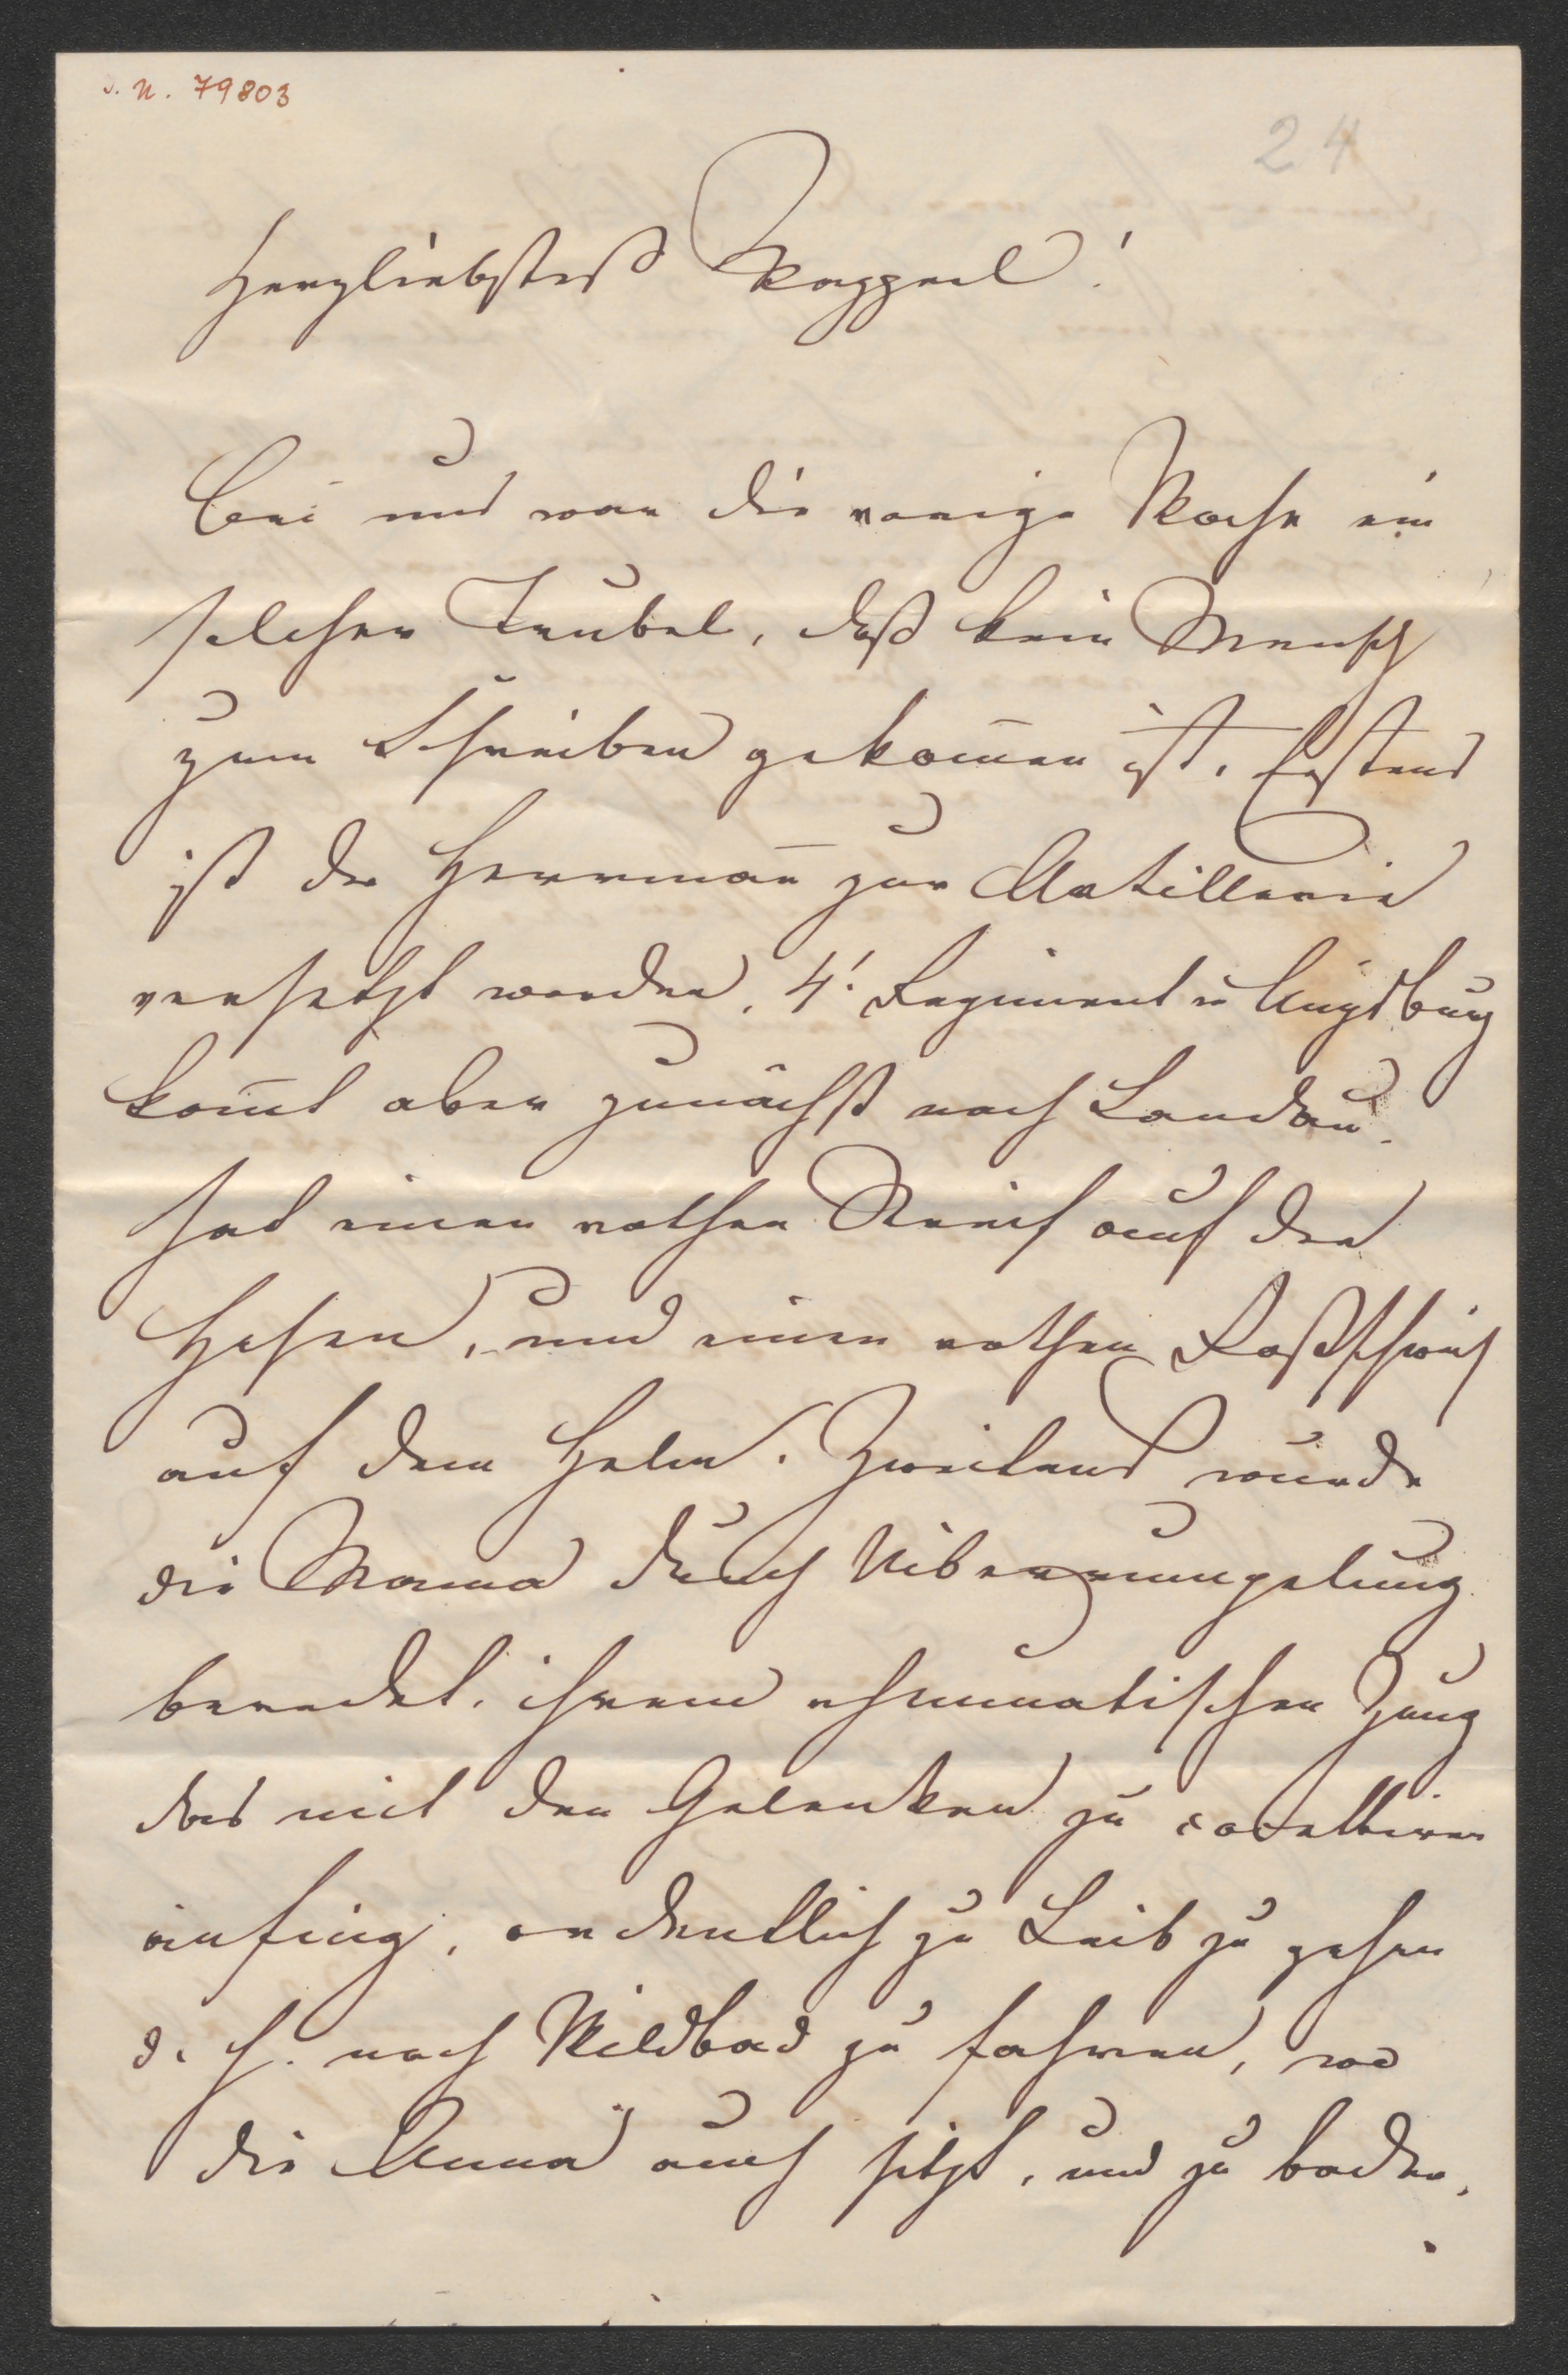 J. N. 79803
24
Herzliebstes Kappeel!
Bei uns war die vorige Woche ein
solcher Trubel, daß kein Mensch
zum Schreiben gekom̄en ist. Erstens
ist der Herrman̄ zur Artillerie
versetzt worden. 4! Regiment in Augsburg
kom̄t aber zunächst nach Landau.
hat einen rothen Streif auf den
Hosen, und einen rothen Roßschweif
auf dem Helm. Zweitens wurde
die Mama durch Überrumpelung
beredet, ihrem rheumatischen Zeug
das mit den Gelenken zu
anfing, ordentlich zu Leib zu gehen
d. h. nach Wildbad zu fahren, wo
die Anna auch sitzt, und zu baden.